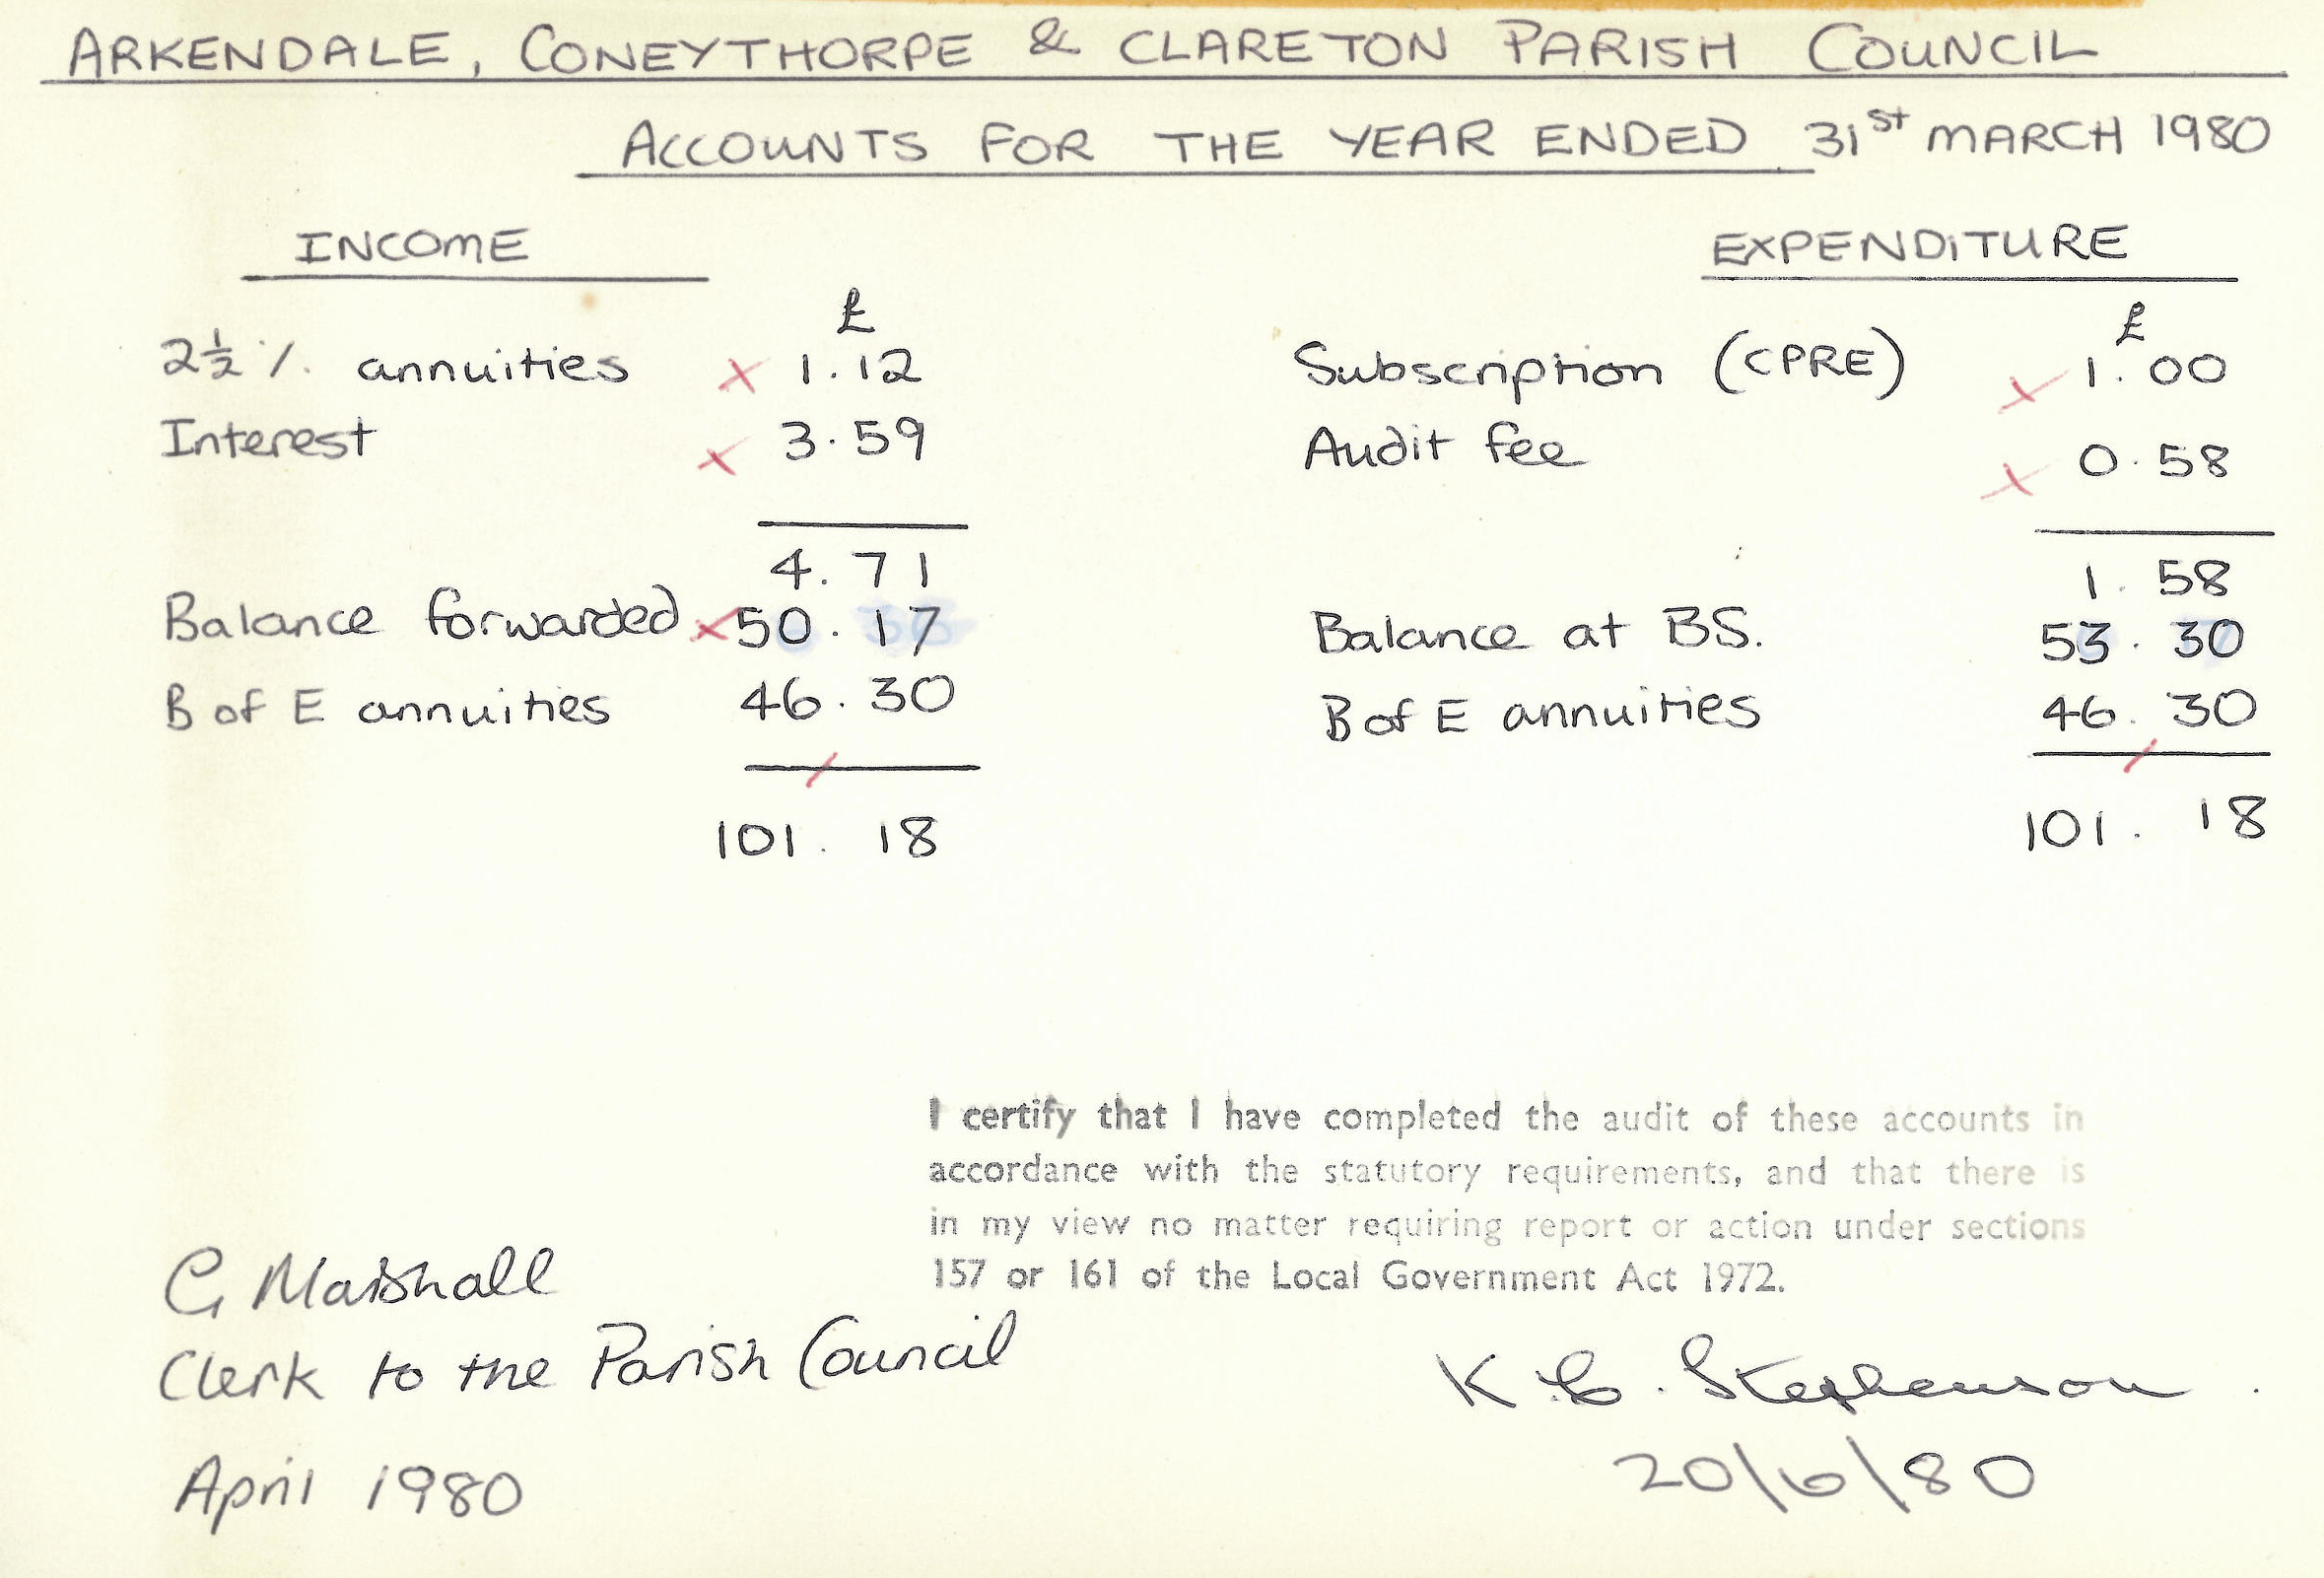 ARKENDALE, CONEYTHORPE & CLARETON PARISH COUNCIL
ACCOUNTS FOR THE YEAR ENDED 31st MARCH 1980
INCOME
£
2½% annuities × 1.12
Interest × 3.59
4.71
Balance forwarded × 50.17
B of E annuities 46.30
101.18
EXPENDITURE
£
Subscription (CPRE) × 1.00
Audit fee × 0.58
1.58
Balance at BS. 53.30
B of E annuities 46.30
101.18
I certify that I have completed the audit of these accounts in
accordance with the statutory requirements, and that there is
in my view no matter requiring report or action under sections
157 or 161 of the Local Government Act 1972.
G Marshall
Clerk to the Parish Council
April 1980
K. Stephenson.
20/6/80